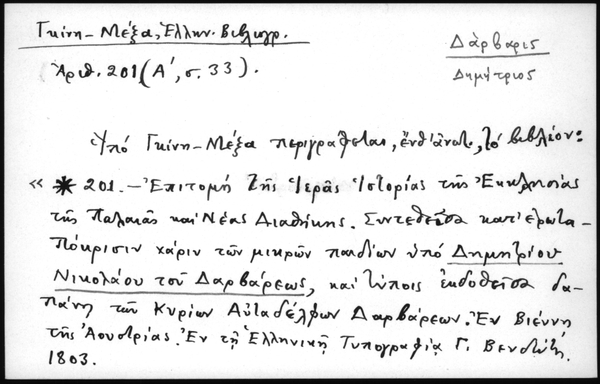 Γκίνη-Μέξα, Ἑλλην. Βιβλιογρ.
Δάρβαρις
Δημήτριος
Ἀριθ. 201 (Α', σ. 33).
Ὑπό Γκίνη-Μέξα περιγράφεται, ἔνθ' ἀνωτ., τό βιβλίον:
« * 201. - Ἐπιτομή τῆς Ἱερᾶς Ἱστορίας τῆς Ἐκκλησίας
τῆς Παλαιᾶς καί Νέας Διαθήκης. Συντεθεῖσα κατ' ἐρωτα-
πόκρισιν χάριν τῶν μικρῶν παιδίων ὑπό Δημητρίου
Νικολάου τοῦ Δαρβάρεως, καί τύποις ἐκδοθεῖσα δα-
πάνῃ τῶν Κυρίων Αὐταδέλφων Δαρβάρεων. Ἐν Βιέννῃ
τῆς Αουστρίας. Ἐν τῇ Ἑλληνικῇ Τυπογραφίᾳ Γ. Βενδώτη.
1803.